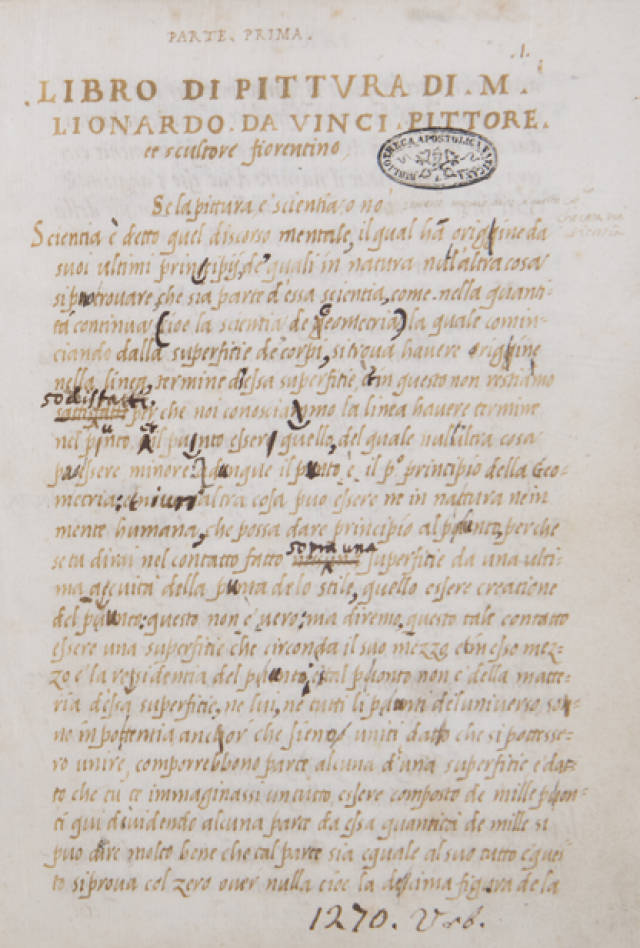 PARTE. PRIMA.
.1.
.LIBRO DI PITTVRA DI. M.
LIONARDO. DA VINCI. PITTORE.
et scultore fiorentino
BIBLIOTHECA APOSTOLICA VATICANA
Se la pittura e' scientia o no
Scientia è detto quel discorso mentale, il qual ha origgine da
suoi ultimi principij, de' quali in natura null'altra cosa
si po trovare, che sia parte d'essa scientia, come nella quanti-
tà continua (cioe la scientia de Geometria) la quale comin-
ciando dalla superfitie de corpi, si trova havere origgine
nella linea, termine d'essa superfitie, et in questo non restiamo
sodisfatti,
perche noi conosciamo la linea havere termine
nel punto, et il punto essere quello, del quale null'altra cosa
po essere minore. Dunque il punto è il p.º principio della Geo-
metria; et altra cosa puo essere ne in natura ne in
mente humana, che possa dare principio al punto, perche
se tu dirai nel contatto fatto sopra una superfitie da una ulti-
ma accuità della punta de lo stile, quello essere creatione
del punto: questo non è vero; ma diremo, questo tale contatto
essere una superfitie che circonda il suo mezzo et in esso mez-
zo è la residentia del punto, e tal punto non è della matte-
ria d'essa superfitie, ne lui, ne tutti li punti del universo so-
no in potentia anchor' che sieno uniti dato che si potesse-
ro unire, comporrebbono parte alcuna d'una superfitie e da-
to che tu te immaginassi un tutto, essere composto de mille pon-
ti qui dividendo alcuna parte da essa quantità de mille si
puo dire molto bene che tal parte sia equale al suo tutto e quei
to si prova col zero over nulla cioe la decima figura de la
1270. Urb.